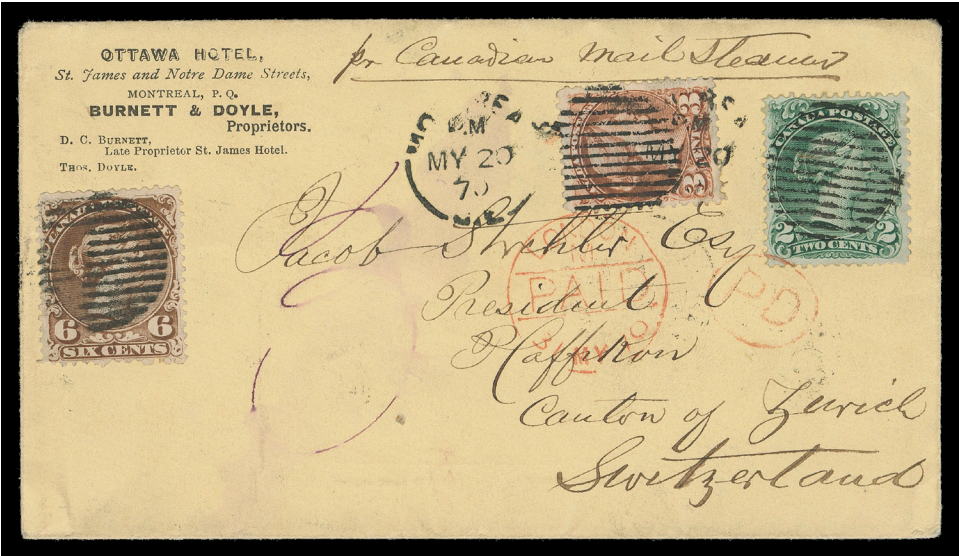 OTTAWA HOTEL,
St. James and Notre Dame Streets,
MONTREAL, P. Q.
BURNETT & DOYLE,
Proprietors.
D. C. BURNETT,
Late Proprietor St. James Hotel.
THOS. DOYLE.
pr Canadian Mail Steamer
MONTREAL
PM
MY 20
70
QUE
3 CENTS 3
CANADA POSTAGE
2 2
TWO CENTS
CANADA
6 6
SIX CENTS
Jacob Strehler Esq
President
Pfaffikon
Canton of Zurich
Switzerland
LONDON
PAID
MY
PD